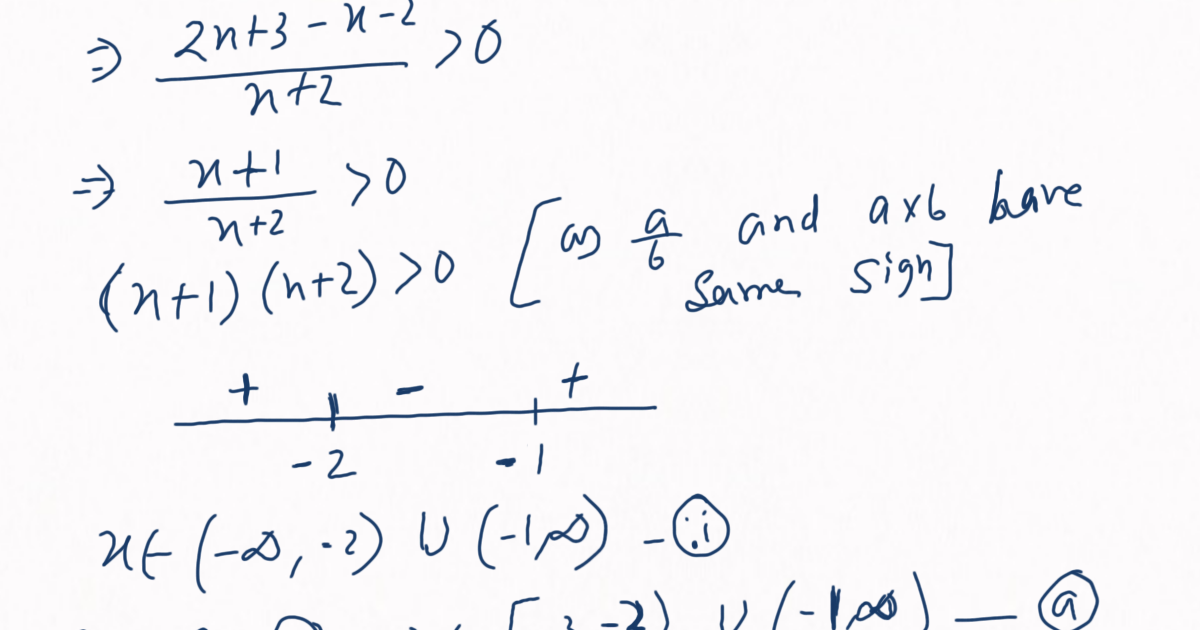 ⇒ (2x+3 - x-2)/(x+2) > 0
⇒ (x+1)/(x+2) > 0
(x+1) (x+2) > 0 [as a/b and a x b have same sign]
+ - +
-2 -1
x ∈ (-∞, -2) ∪ (-1, ∞) - (ii)
-2) ∪ (-1, ∞) — (a)